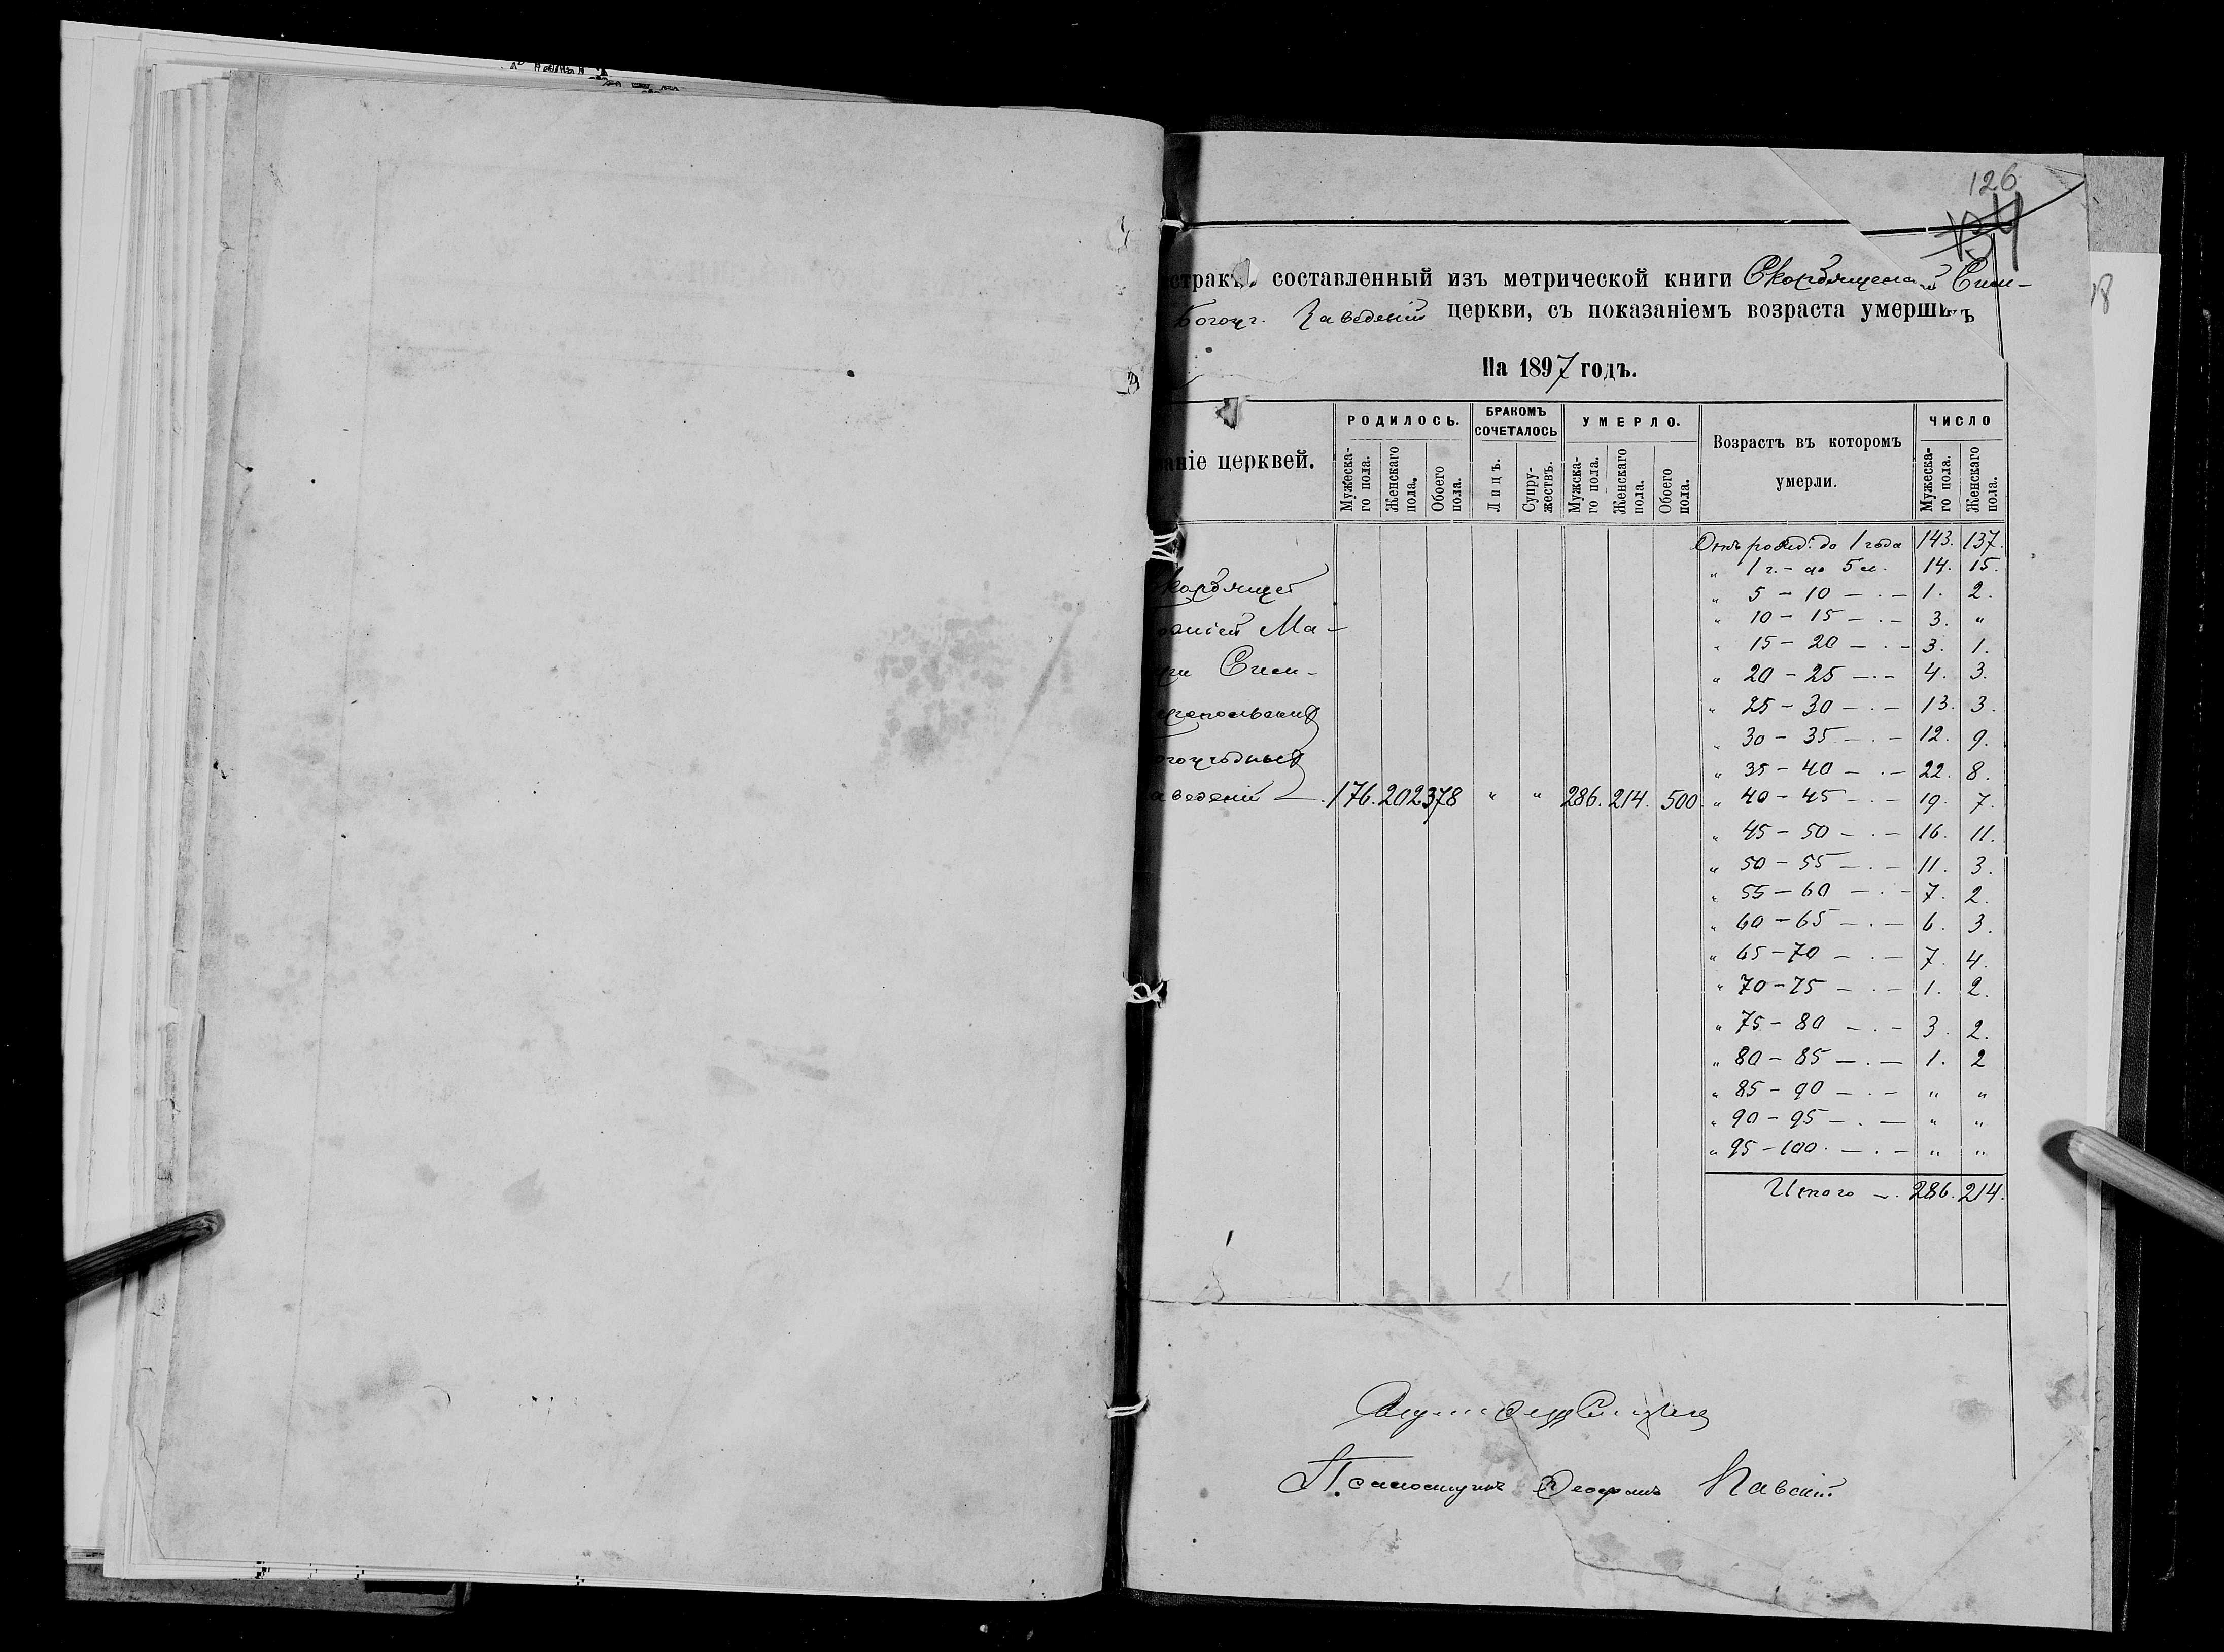 126
страктъ составленный изъ метрической книги Скорбященской Сим-
Богоуг. Заведеній церкви, съ показаніемъ возраста умершихъ
На 1897 годъ.
аніе церквей.
РОДИЛОСЬ.
БРАКОМЪ СОЧЕТАЛОСЬ
УМЕРЛО.
Возрастъ въ которомъ умерли.
ЧИСЛО
Мужеска-го пола.
Женскаго пола.
Обоего пола.
Лицъ.
Супру-жествъ.
Мужска-го пола.
Женскаго пола.
Обоего пола.
Мужеска-го пола.
Женскаго пола.
Отъ рожд. до 1 года 143. 137.
" 1 г. - до 5 л. 14. 15.
" 5 - 10 - . - 1. 2.
" 10 - 15 - . - 3. "
" 15 - 20 - . - 3. 1.
" 20 - 25 - . - 4. 3.
" 25 - 30 - . - 13. 3.
" 30 - 35 - . - 12. 9.
" 35 - 40 - . - 22. 8.
" 40 - 45 - . - 19. 7.
" 45 - 50 - . - 16. 11.
" 50 - 55 - . - 11. 3.
" 55 - 60 - . - 7. 2.
" 60 - 65 - . - 6. 3.
" 65 - 70 - . - 7. 4.
" 70 - 75 - . - 1. 2.
" 75 - 80 - . - 3. 2.
" 80 - 85 - . - 1. 2
" 85 - 90 - . - " "
" 90 - 95 - . - " "
" 95 - 100. - . - " "
Итого - . 286. 214.
корбящей
жіей Ма-
ери Сим-
феропольскихъ
огоугодныхъ
аведеній - . 176. 202 378 " " 286. 214. 500
Псаломщикъ Павскій